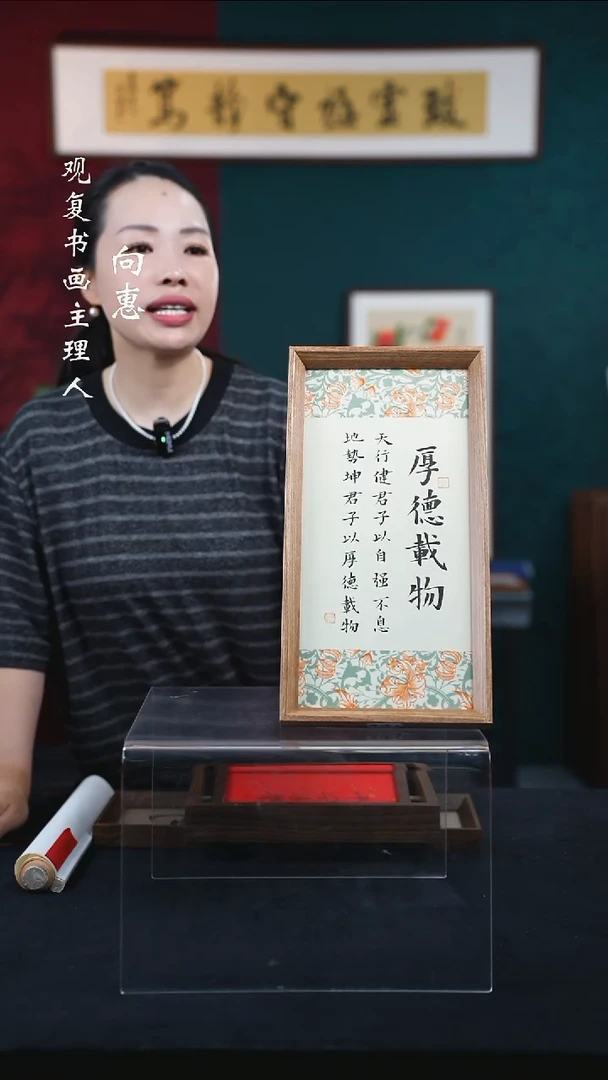 致虛極守静篤
观复书画主理人
向惠
厚德載物
天行健君子以自强不息
地勢坤君子以厚德載物